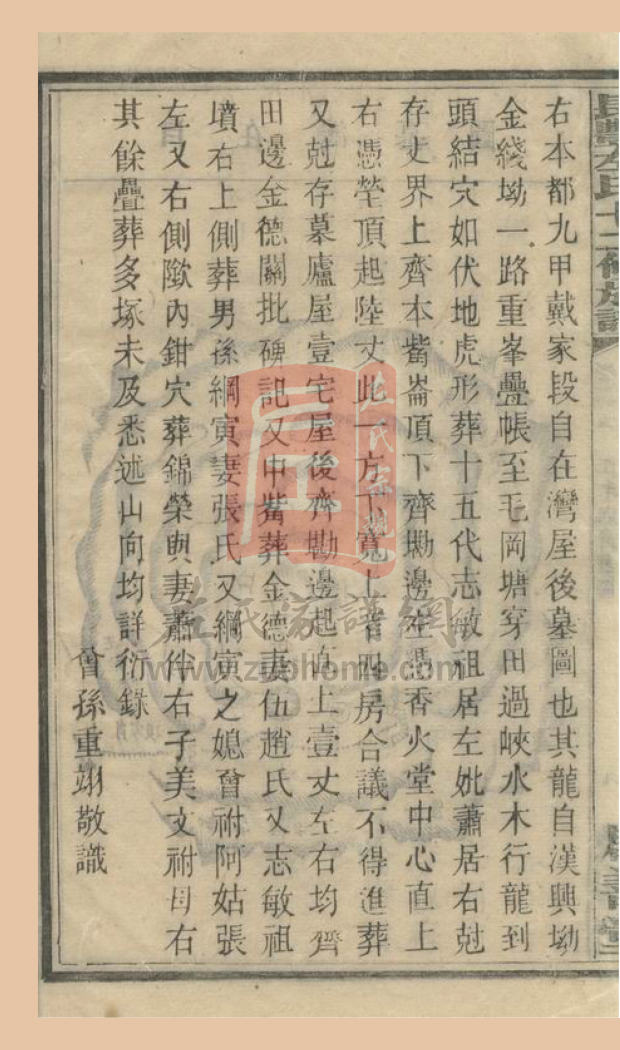 右本都九甲戴家段自在灣屋後墓圖也其龍自漢興坳
金綫坳一路重峯疊帳至毛岡塘穿田過峽水木行龍到
頭結穴如伏地虎形葬十五代志敏祖居左妣蕭居右尅
存丈界上齊本觜崙頂下齊磡邊左憑香火堂中心直上
右憑塋頂起陸丈此一方下寬上窄四房合議不得進葬
又尅存墓廬屋壹宅屋後齊磡邊起直上壹丈左右均齊
田邊金德關批碑記又中觜葬金德妻伍趙氏又志敏祖
墳右上側葬男孫綱寅妻張氏又綱寅之媳曾祔阿姑張
左又右側隞內鉗穴葬錦榮與妻蕭伴右子美文祔母右
其餘疊葬多塚未及悉述山向均詳衍錄
曾孫重翊敬識
左氏宗親
左氏家譜網
www.zuohome.com